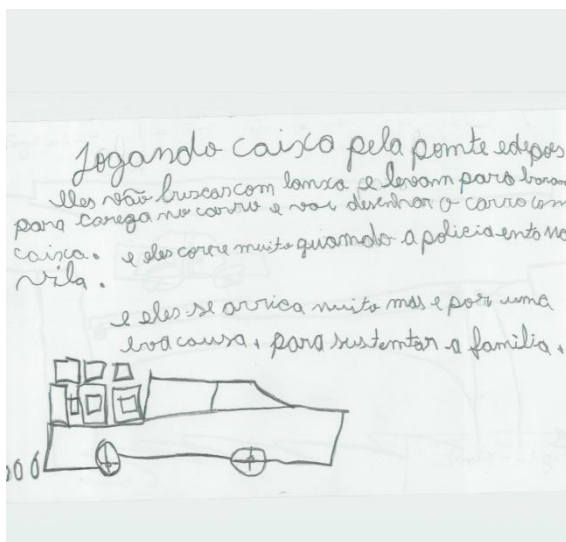 Jogando caixa pela pomte edepos
elles vão buscas com lamxa e levam para
para carega no carro e vou desenhar o carro com
caixa. e eles corre muito quamdo a policia
vila.
e eles se arrica muito mas e por uma
causa, para sustemtar a familia.